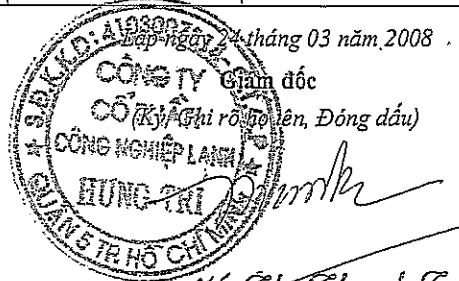 Lập ngày 24 tháng 03 năm 2008
Giám đốc
(Ký, Ghi rõ họ tên, Đóng dấu)
CÔNG TY
CỔ PHẦN
CÔNG NGHIỆP LẠNH
HƯNG TRÍ
QUẬN 5 TP. HỒ CHÍ MINH